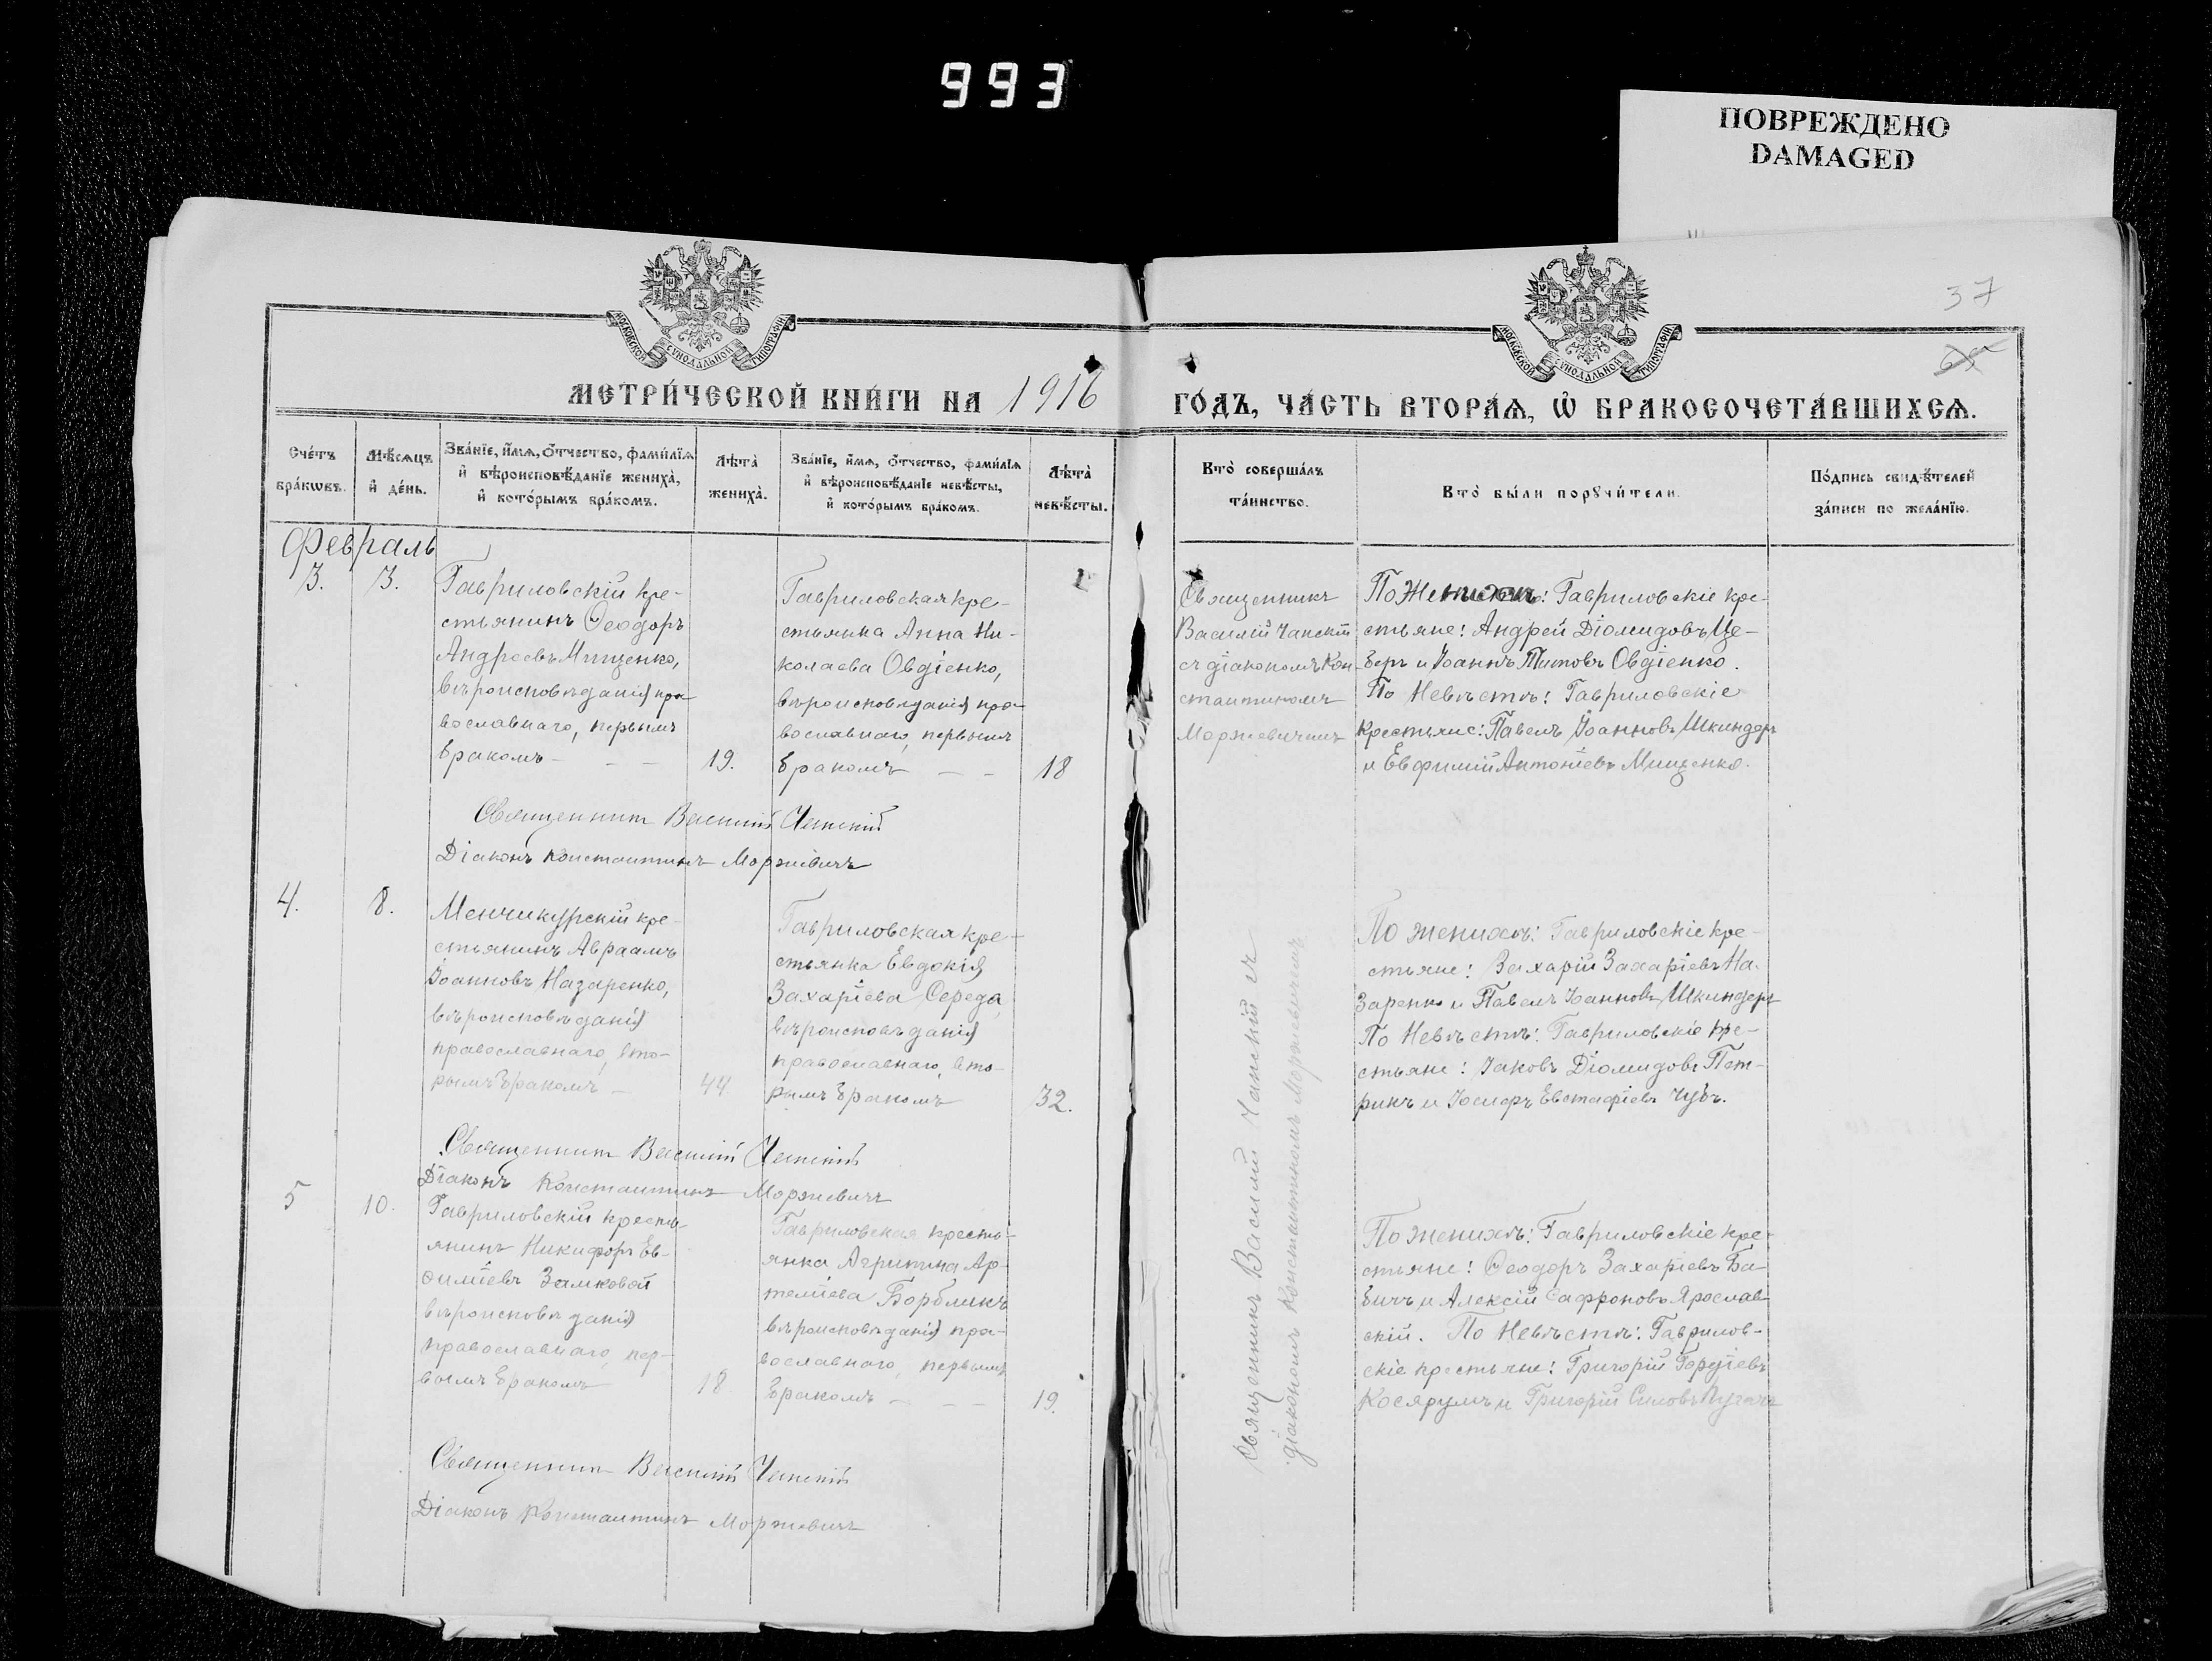 993
ПОВРЕЖДЕНО
DAMAGED
МОСКОВСКОЙ СѴНОДАЛЬНОЙ ТИПОГРАФІИ
МОСКОВСКОЙ СѴНОДАЛЬНОЙ ТИПОГРАФІИ
37
65
МЕТРИ́ЧЕСКОЙ КНИ́ГИ НА 1916
ГО́ДЪ, ЧА́СТЬ ВТОРА́Ѧ, Ѡ҆ БРАКОСОЧЕТА́ВШИХСѦ.
Сче́тъ
бра́кѡвъ.
Мѣ́сѧцъ
и҆ де́нь.
Зва́нїе, и҆́мѧ, ѻ҆́тчество, фами́лїѧ
и҆ вѣроисповѣ́данїе жениха̀,
и҆ кото́рымъ бра́комъ.
Лѣ́та̀
жениха̀.
Зва́нїе, и҆́мѧ, ѻ҆́тчество, фами́лїѧ
и҆ вѣроисповѣ́данїе невѣ́сты,
и҆ кото́рымъ бра́комъ.
Лѣ́та̀
невѣ́сты.
Кто̀ соверша́лъ
та́инство.
Кто̀ бы́ли порꙋчи́тели.
По́дпись свидѣ́телей
за́писи по жела́нїю.
Февраль
3.
3.
Гавриловскій кре-
стьянинъ Ѳеодоръ
Андреевъ Мищенко,
вѣроисповѣданія пра
вославнаго, первымъ
бракомъ - - -
19.
Гавриловская кре-
стьянка Анна Ни-
колаева Овдіенко,
вѣроисповѣданія пра-
вославнаго, первымъ
бракомъ - -
18
Священникъ
Василій Чапскій
съ діакономъ Кон-
стантиномъ
Моржевичемъ
По Женихѣ: Гавриловскіе кре-
стьяне: Андрей Діомидовъ Це-
беръ и Іоаннъ Титовъ Овдіенко.
По Невѣстѣ: Гавриловскіе
крестьяне: Павелъ Іоанновъ Шкиндеръ
и Евфимій Антоніевъ Мищенко.
Священникъ Василій Чапскій
Діаконъ Константинъ Моржевичъ
4.
8.
Менчикурскій кре-
стьянинъ Авраамъ
Іоанновъ Назаренко,
вѣроисповѣданія
православнаго, вто-
рымъ бракомъ -
44.
Гавриловская кре-
стьянка Евдокія
Захаріева Середа,
вѣроисповѣданія
православнаго, вто-
рымъ бракомъ
32.
По женихѣ: Гавриловскіе кре-
стьяне: Захарій Захаріевъ На-
заренко и Павелъ Іоанновъ Шкиндеръ
По Невѣстѣ: Гавриловскіе кре-
стьяне: Іаковъ Діомидовъ Пет-
рикъ и Іосифъ Евстафіевъ Чубъ.
Священникъ Василій Чапскій
Діаконъ Константинъ Моржевичъ
5
10.
Гавриловскій кресть-
янинъ Никифоръ Ев-
ѳиміевъ Замковой
вѣроисповѣданія
православнаго, пер-
вымъ бракомъ
18.
Гавриловская кресть-
янка Агрипина Ар-
теміева Борбликъ
вѣроисповѣданія пра-
вославнаго, первымъ
бракомъ - - -
19.
Священникъ Василій Чапскій съ
діакономъ Константиномъ Моржевичемъ
По женихѣ: Гавриловскіе кре-
стьяне: Ѳеодоръ Захаріевъ Ба-
бичъ и Алексій Сафроновъ Ярослав-
скій. По Невѣстѣ: Гаврилов-
скіе крестьяне: Григорій Гордіевъ
Косярумъ и Григорій Силовъ Пугачъ
Священникъ Василій Чапскій
Діаконъ Константинъ Моржевичъ